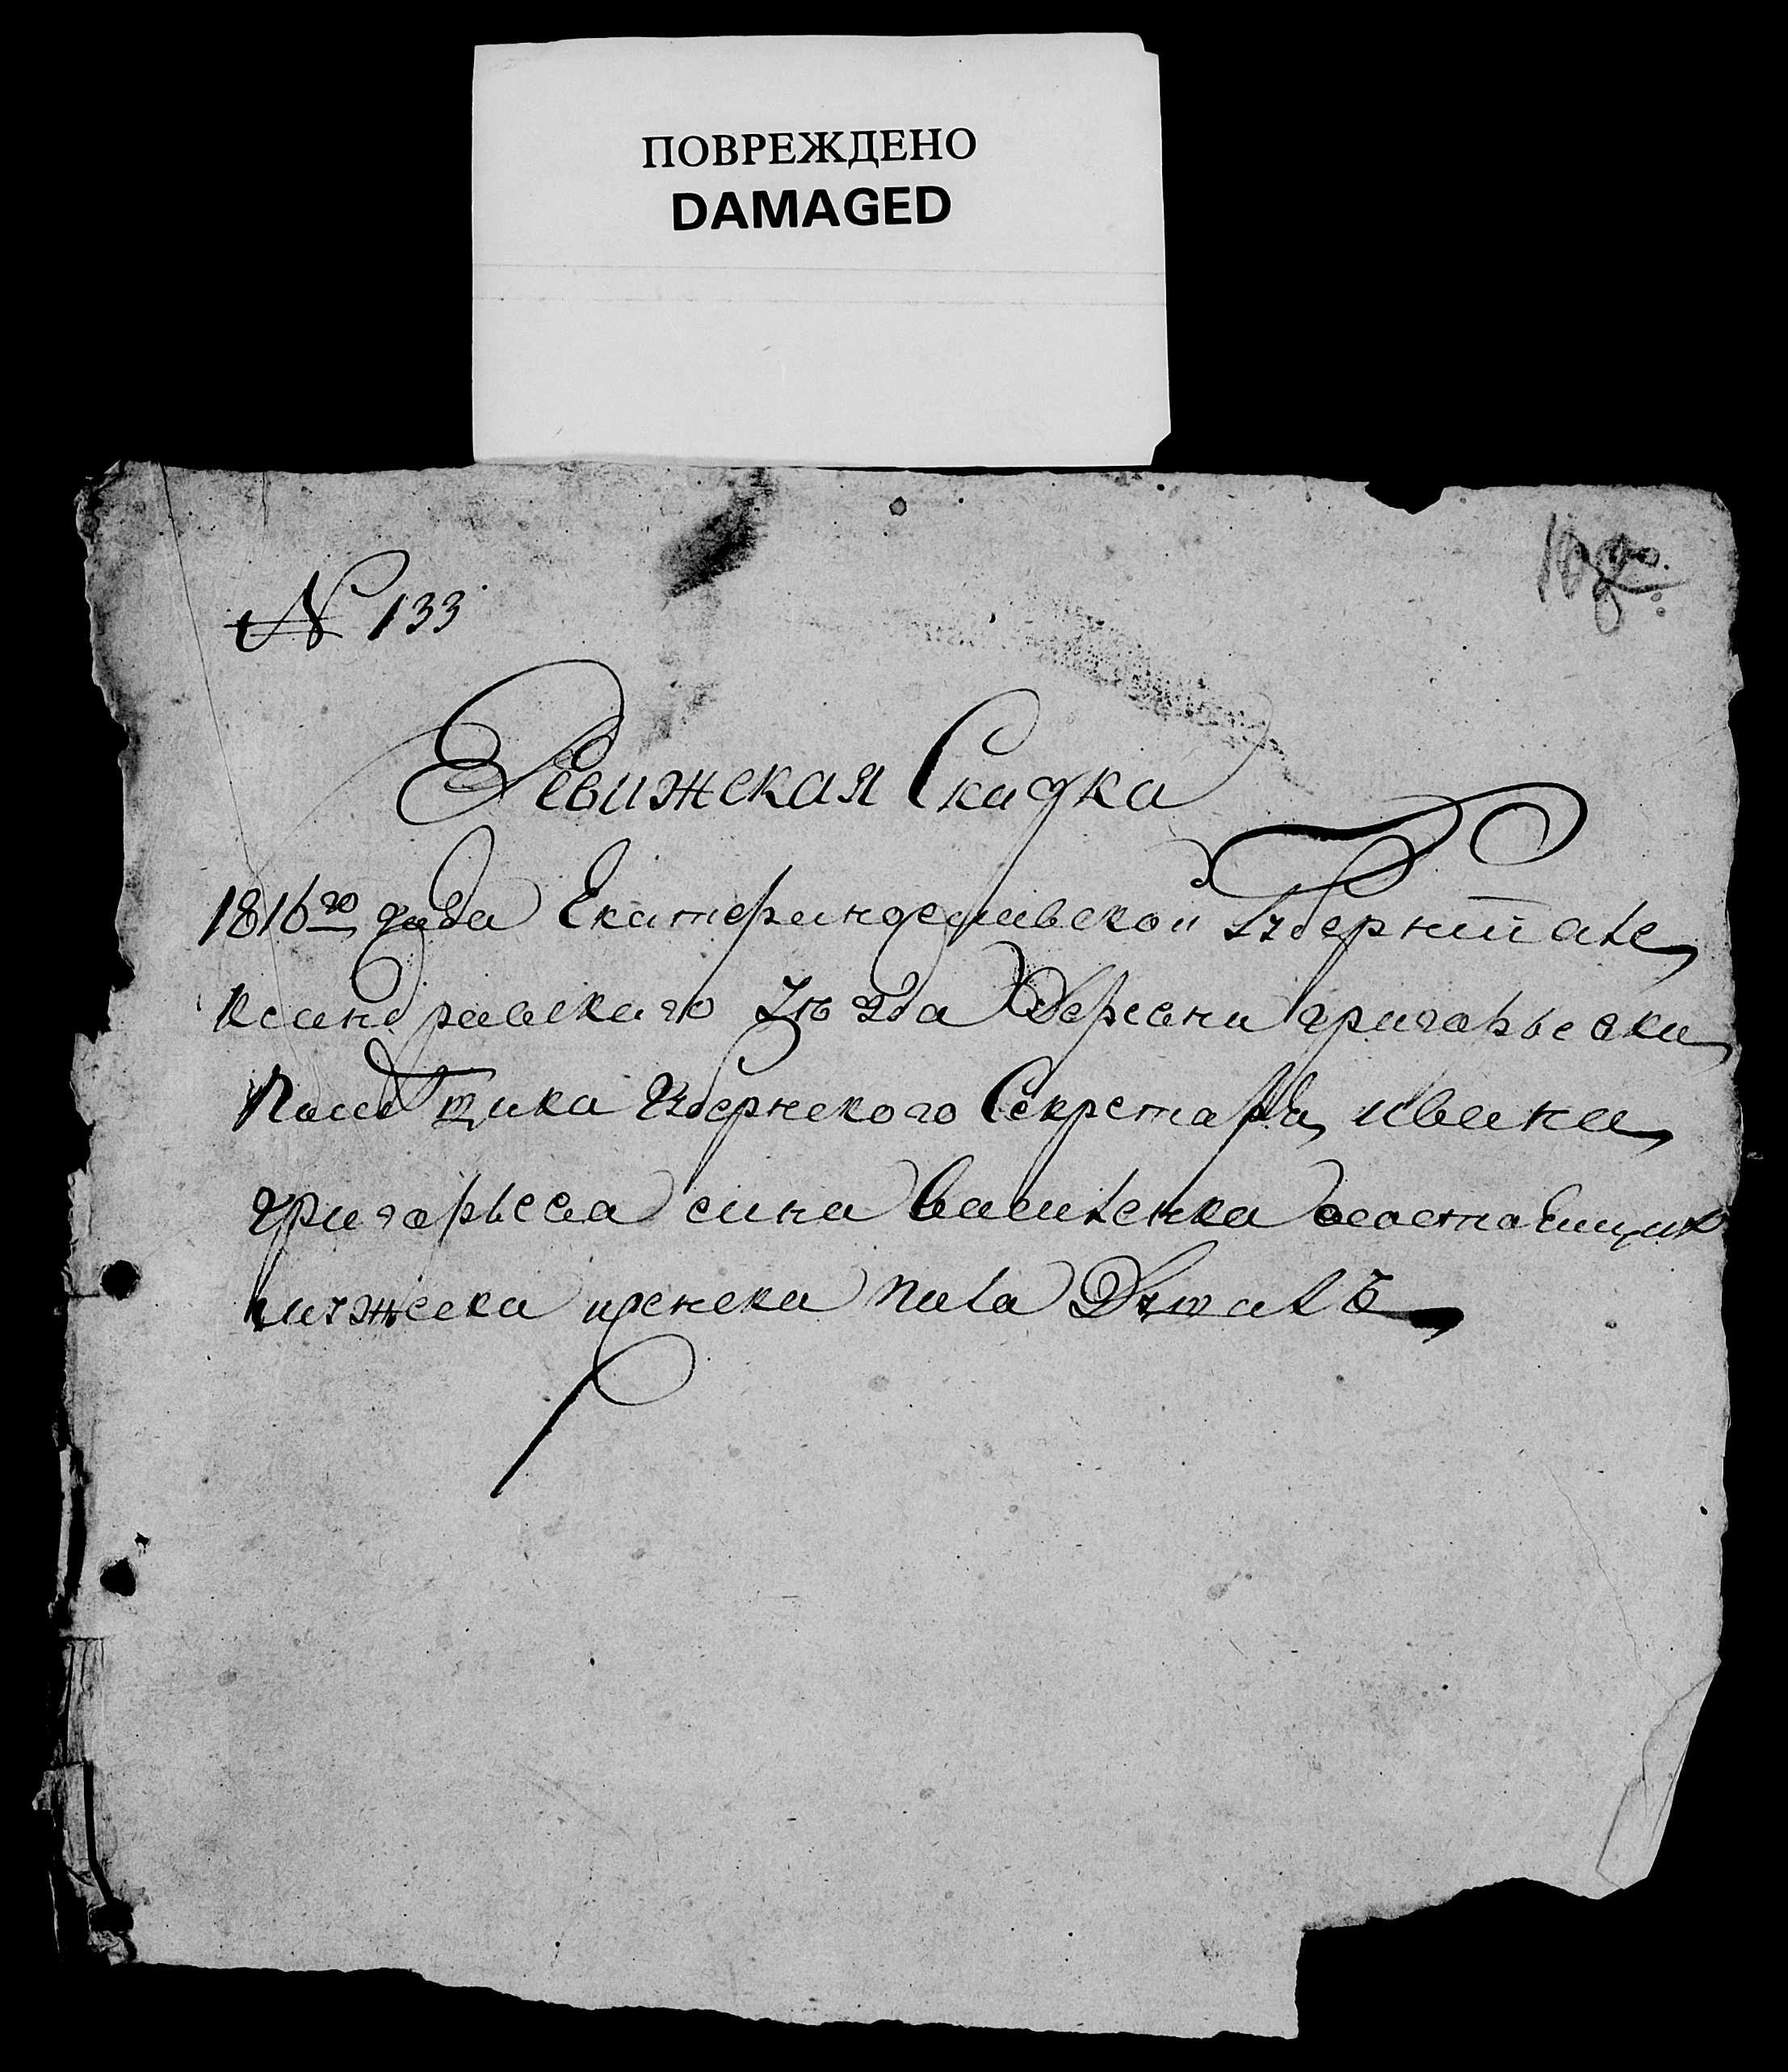 ПОВРЕЖДЕНО
DAMAGED
N 133
Ревижская Скаска
1816го года Екатеринославской Губернии але,
ксандравскаго уѣзда Деревни григорьевки,
Помещика Губернского Секретаря, ивана,
григорьева сина Василенка осостаящих
мужеска иженска пола Душахъ